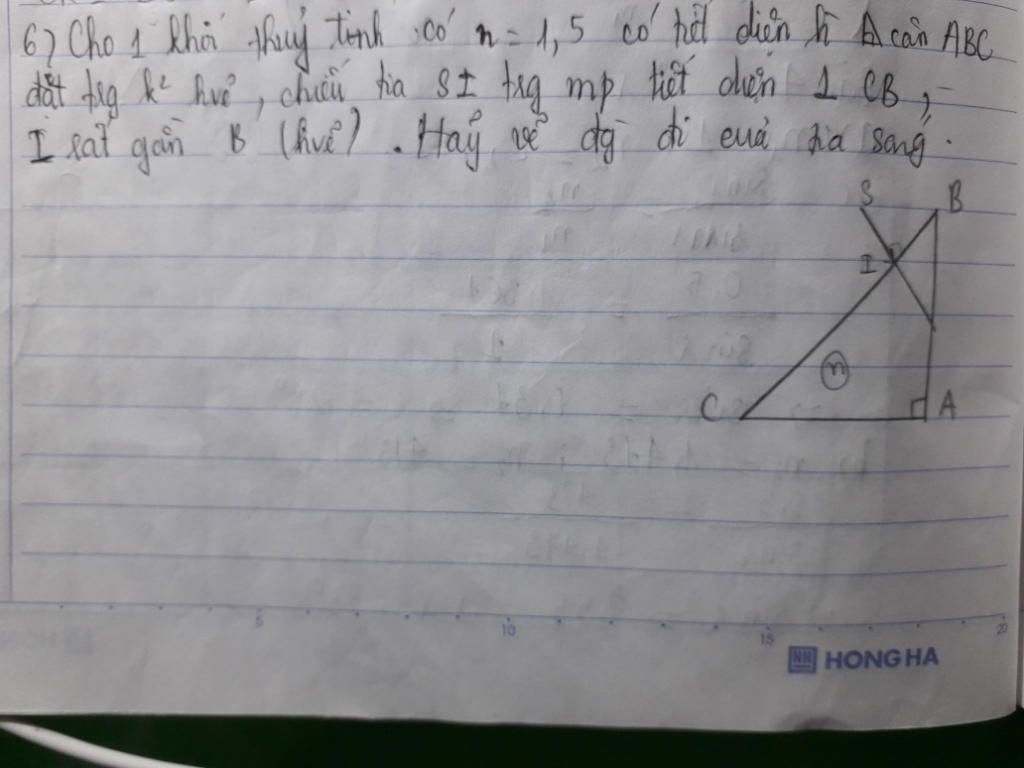 6) Cho 1 khối thuỷ tinh có n = 1,5 có tiết diện là Δ cân ABC
đặt trg k² hvẽ, chiếu tia SI trg mp tiết diện ⊥ CB,
I sát gần B (hvẽ). Hãy vẽ đg đi của tia sáng.
S B
I
n
C A
5 10 15 20
HONG HA